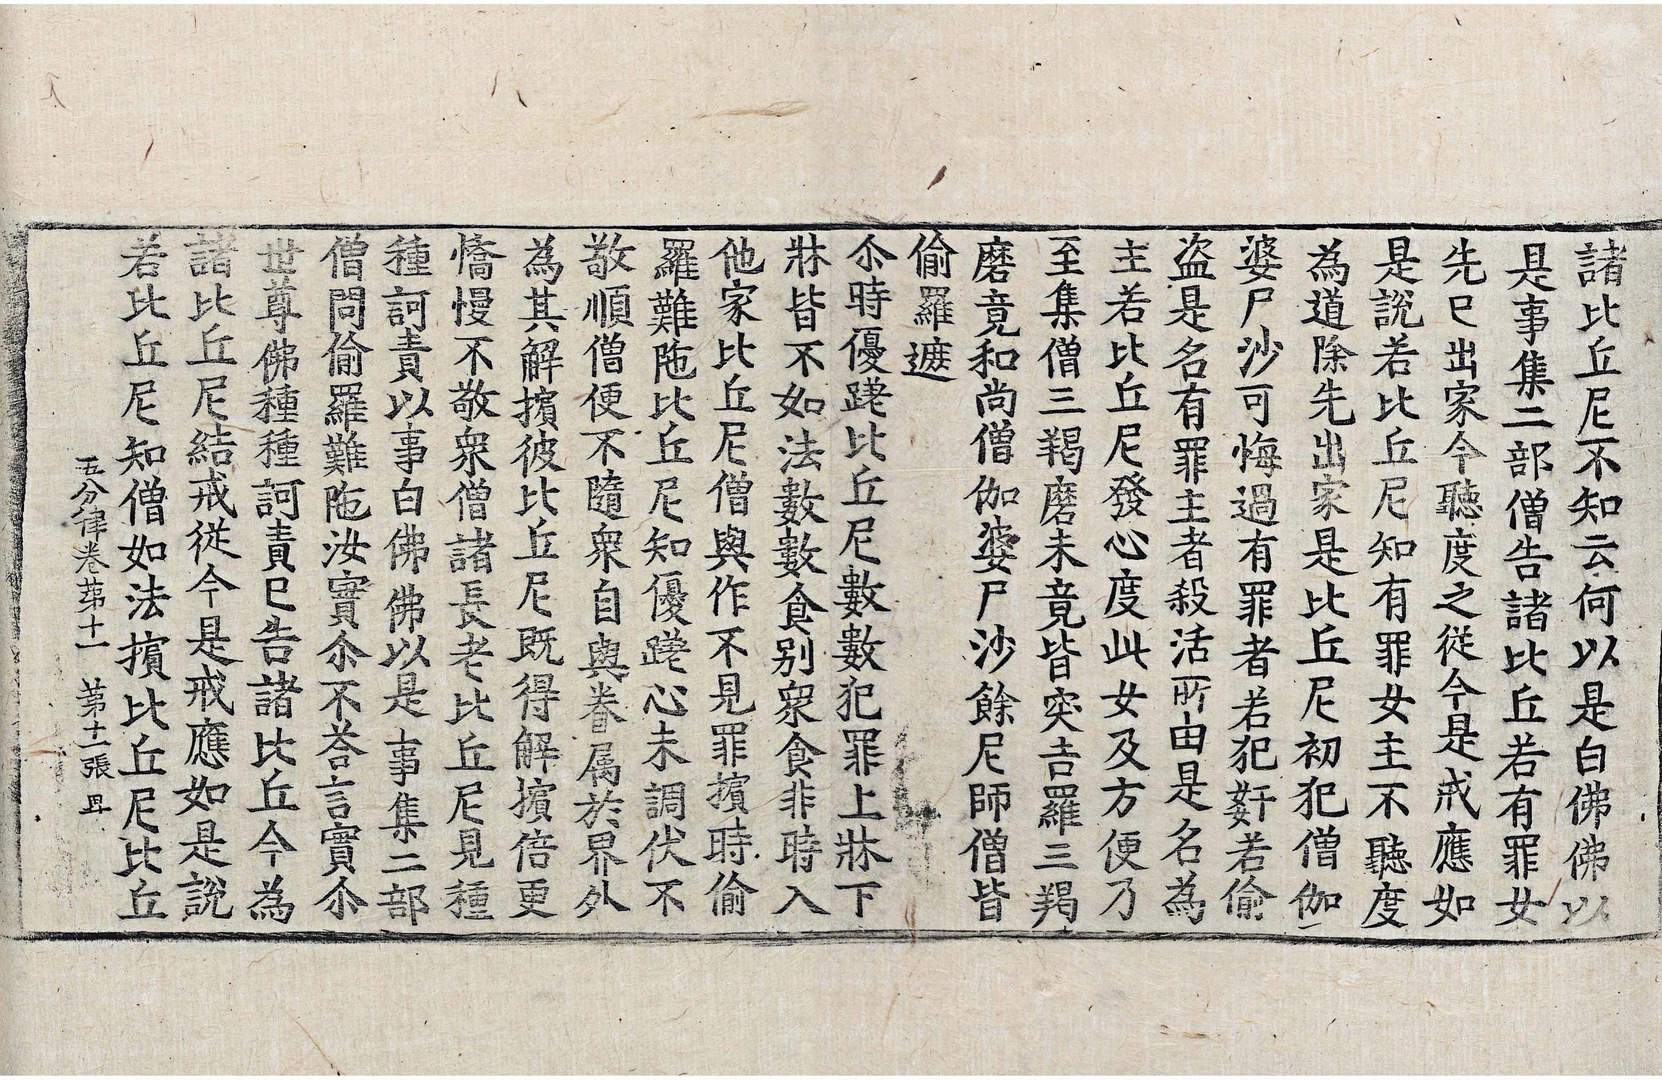 諸比丘尼不知云何以是白佛佛以
是事集二部僧告諸比丘若有罪女
先已出家今聽度之從今是戒應如
是說若比丘尼知有罪女主不聽度
為道除先出家是比丘尼初犯僧伽
婆尸沙可悔過有罪者若犯姧若偷
盜是名有罪主者殺活所由是名為
主若比丘尼發心度此女及方便乃
至集僧三羯磨未竟皆突吉羅三羯
磨竟和尚僧伽婆尸沙餘尼師僧皆
偷羅遮
尒時優蹉比丘尼數數犯罪上牀下
牀皆不如法數數食別衆食非時入
他家比丘尼僧與作不見罪擯時偷
羅難陁比丘尼知優蹉心未調伏不
敬順僧便不隨衆自與眷属於界外
為其解擯彼比丘尼既得解擯倍更
憍慢不敬衆僧諸長老比丘尼見種
種訶責以事白佛佛以是事集二部
僧問偷羅難陁汝實尒不荅言實尒
世尊佛種種訶責已告諸比丘今為
諸比丘尼結戒從今是戒應如是說
若比丘尼知僧如法擯比丘尼比丘
五分律卷苐十一 苐十一張 毋